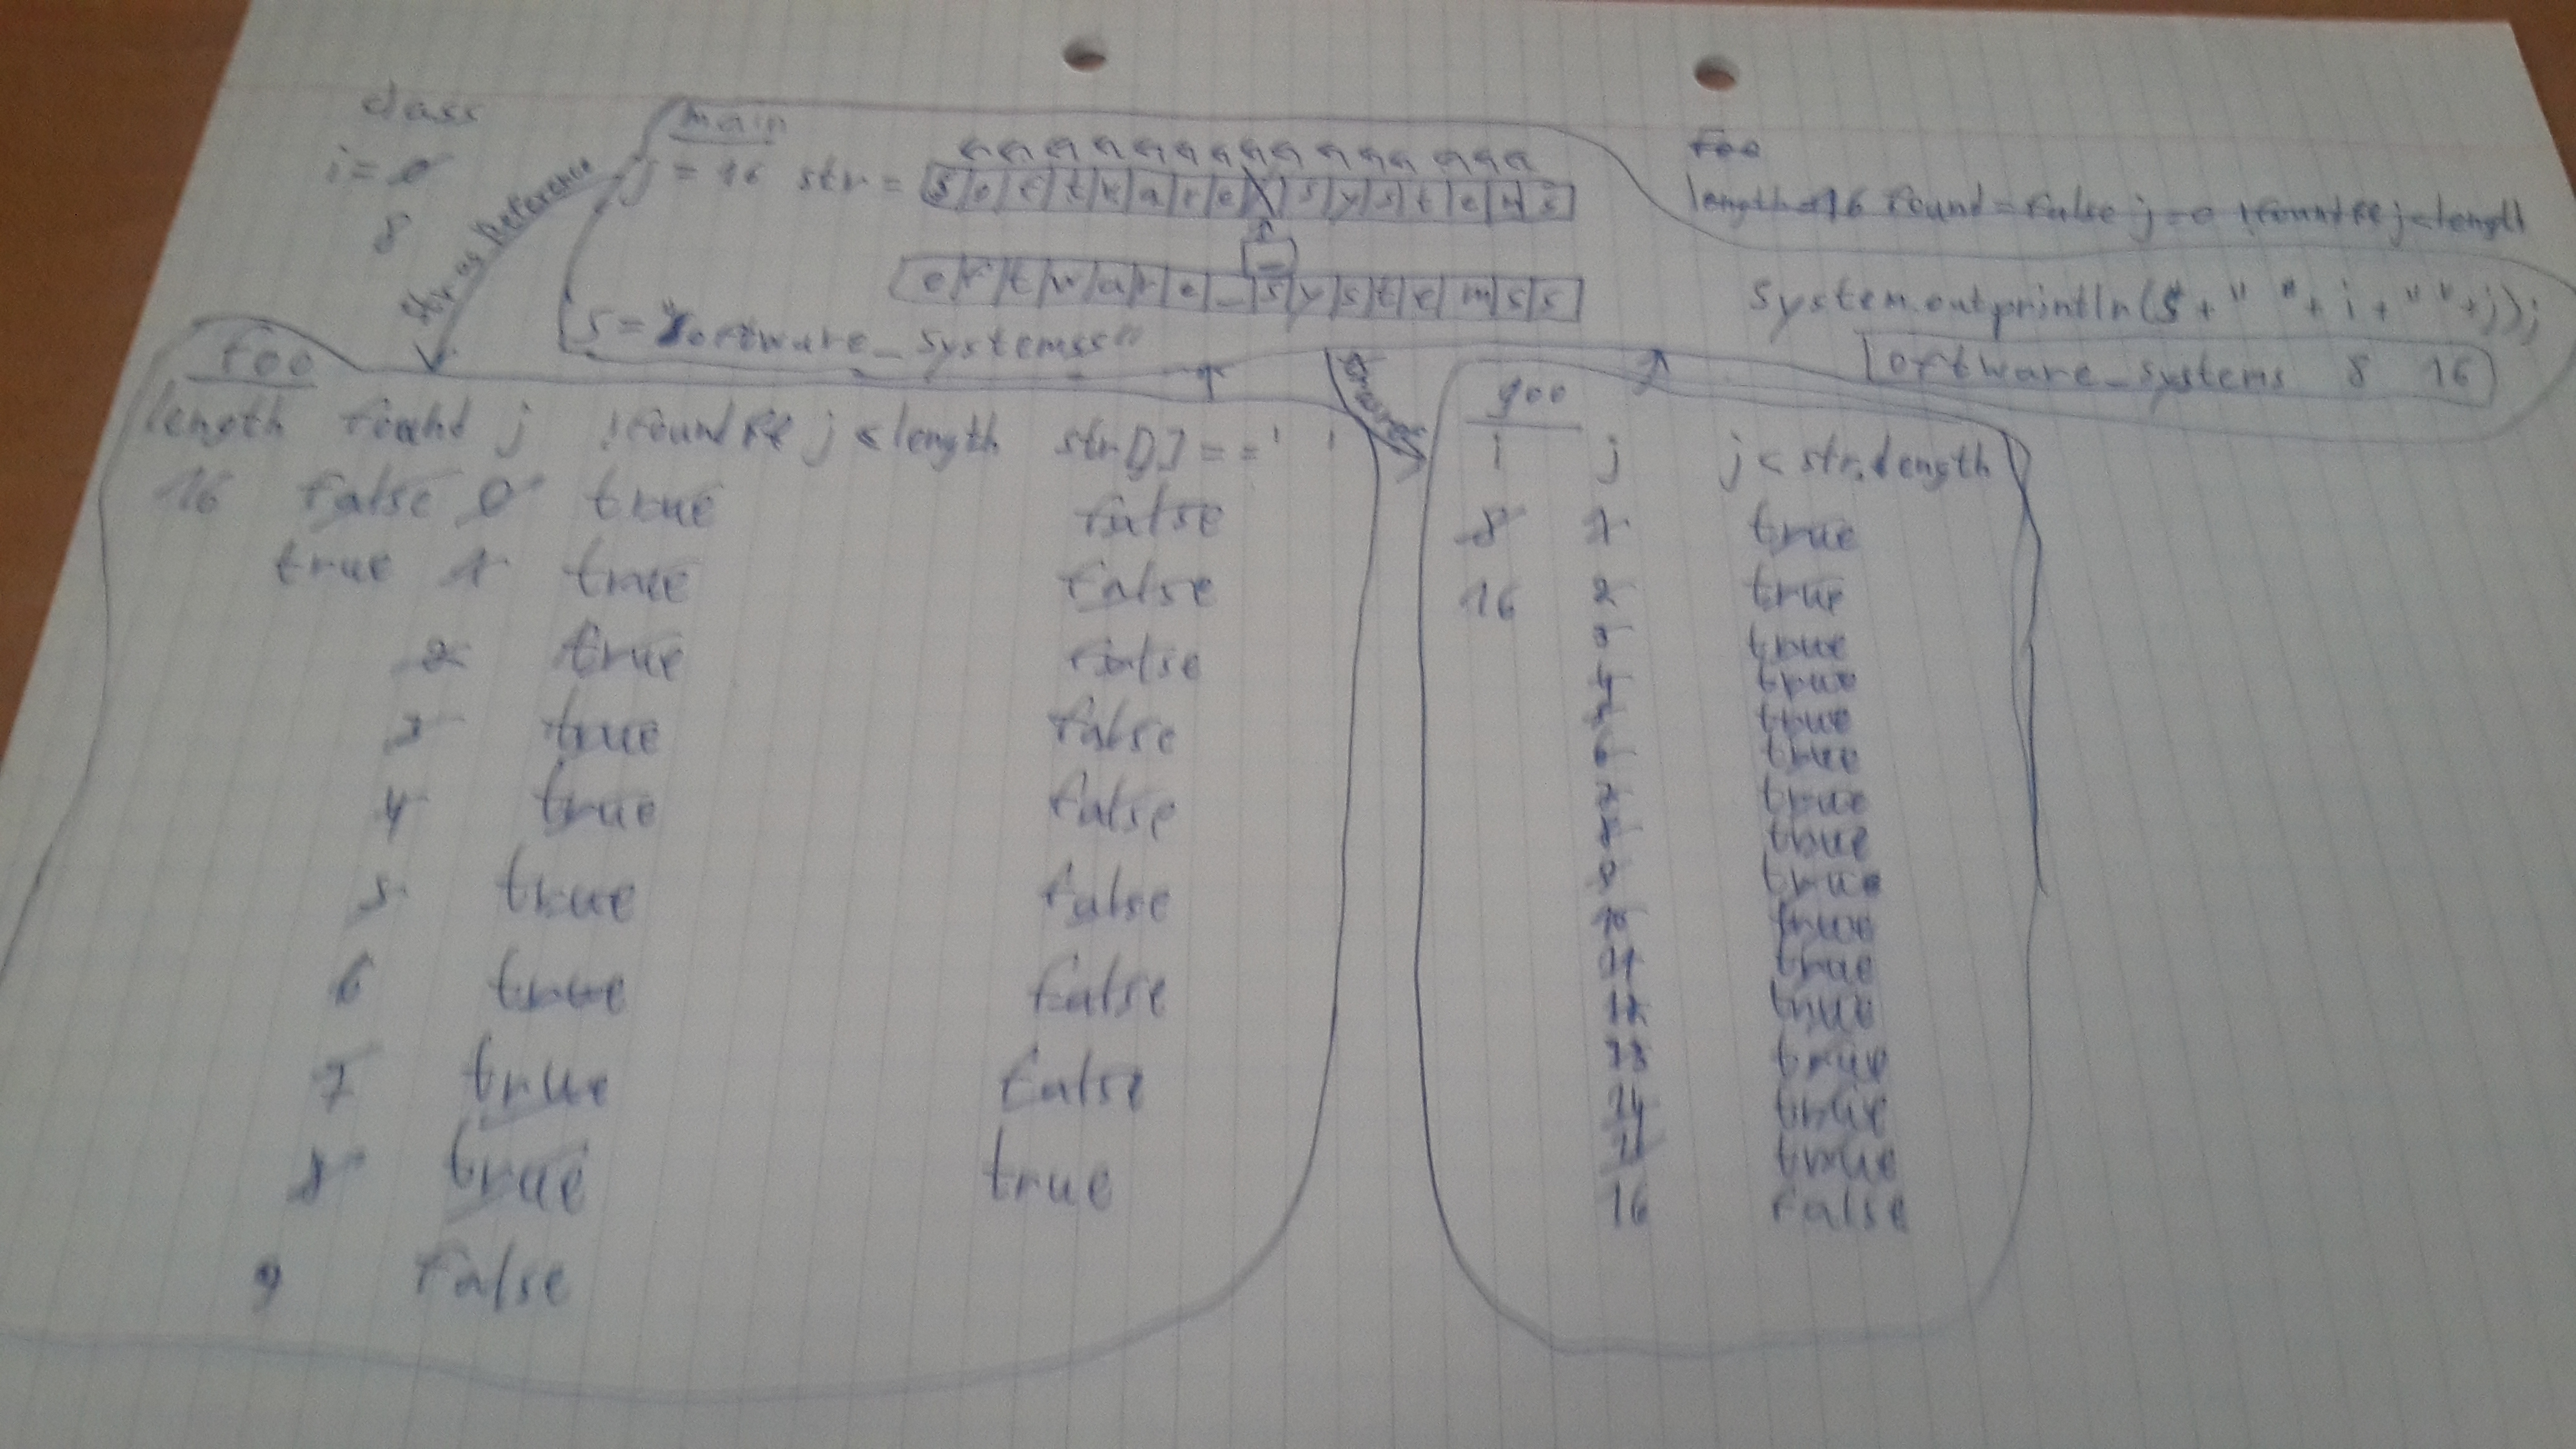 class
i = 0
8
str as Reference
main
j = 16 str = s o f t w a r e s y s t e m s
_
o f t w a r e _ s y s t e m s s
s = "oftware_systemss"
foo
length = 16 found = false j = 0 !found && j < length
System.out.println(s + " " + i + " " + j);
oftware_systems 8 16
foo
length found j !found && j < length str[j] == ' '
16 false 0 true false
true 1 true false
2 true false
3 true false
4 true false
5 true false
6 true false
7 true false
8 true true
9 false
goo
i j j < str.length
8 1 true
16 2 true
3 true
4 true
5 true
6 true
7 true
8 true
9 true
10 true
11 true
12 true
13 true
14 true
15 true
16 false